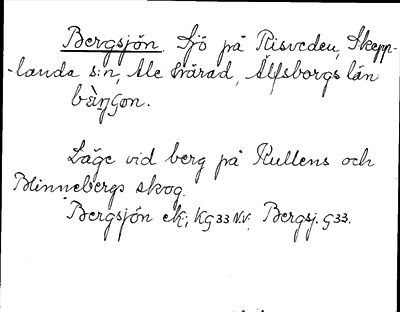 Bergsjön Sjö på Risveden, Skepp-
-landa s:n, Ale härad, Älfsborgs län
bæ̀ŋʂon.
Läge vid berg på Kullens och
Blinnebergs skog.
Bergsjön ek; KG33 N.V. Bergsj. G33.